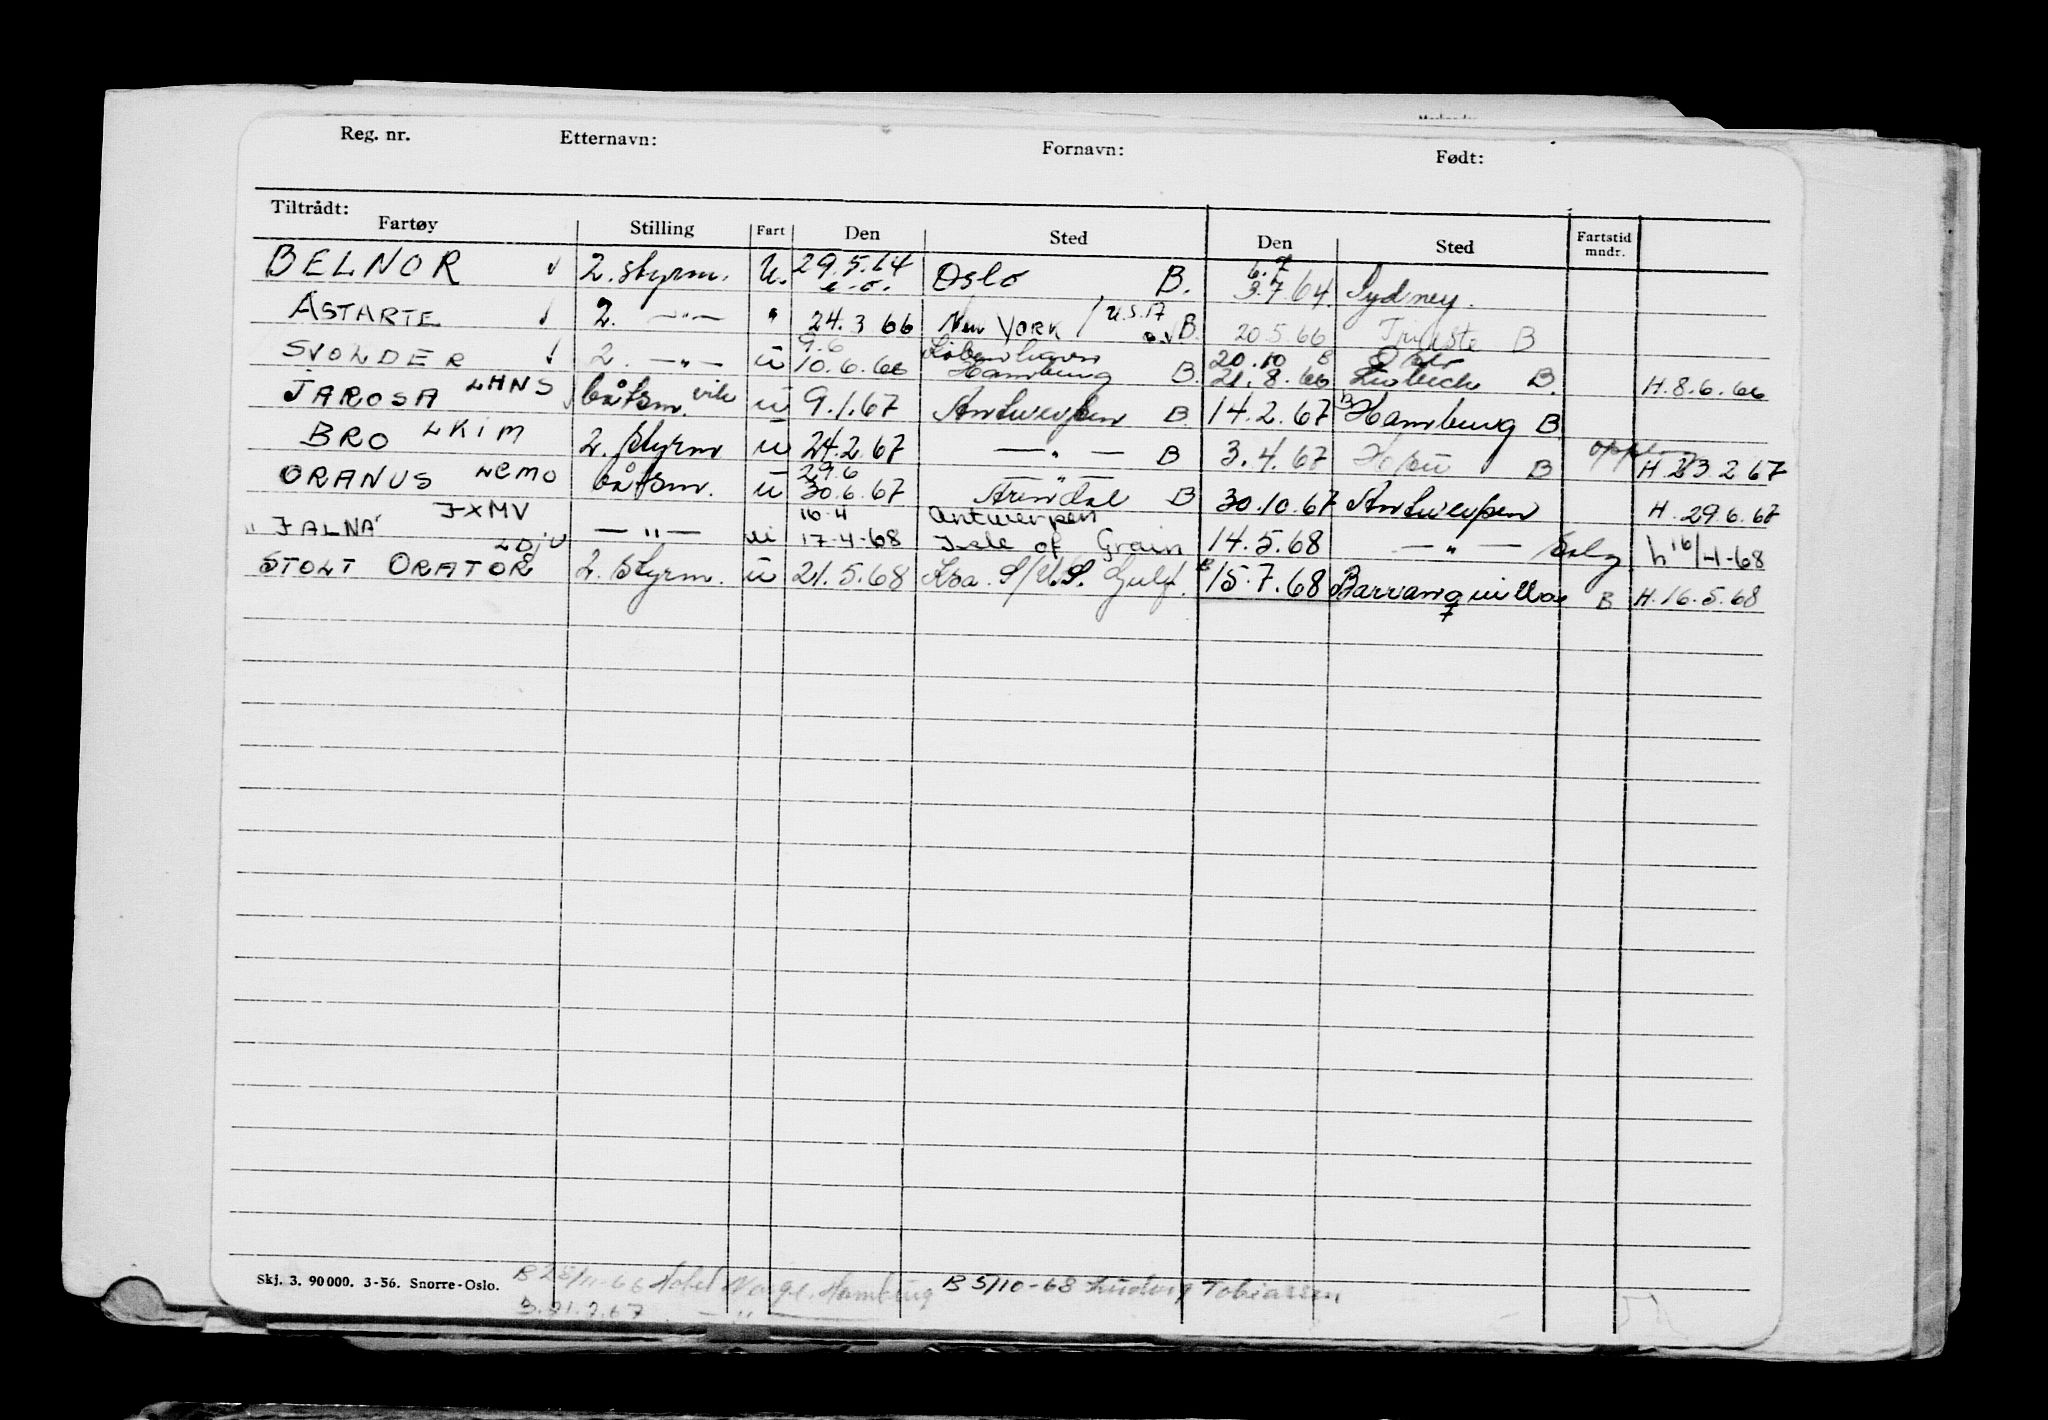 Reg. nr. Etternavn: Fornavn: Født:
Tiltrådt:
Fartøy Stilling Fart Den Sted Den Sted Fartstid mndr.
BELNOR √ 2. styrm. U. 29.5.64 Oslo B. 3.7.64. Sydney.
6.7
ASTARTE √ 2. —"— " 24.3 66 New YORK / B. 20.5.66 Trieste B
9.6 København 20.10 B Oslo
SVOLDER √ 2. —"— u 10.6.66 Hamburg B. 21.8.66 Lübeck B. H. 8.6.66
JAROSA LHNS båtsm. vik u 9.1.67 Antwerpen B 14.2.67 B Hamburg B.
BRO LKIM 2. styrm u 24.2.67 —"— B 3.4.67 B H. 23.2.67
29.6
ORANUS LCMO båtsm. u 30.6.67 Arendal B 30.10.67 Antwerpen H. 29.6.67
JXMV 16.4 Antwerpen
" JALNA —"— u 17-4-68 Isle of Grain 14.5.68 —"— Salg h 16/4-68
STOLT ORATOR 2. styrm. u 21.5.68 S/U.S. Gulf. B 15.7.68 Barranquilla B H. 16.5.68
Skj. 3. 90 000. 3-56. Snorre-Oslo. B 28/11-66 Hotel Norge, Hamburg B 5/10-68 Ludvig Tobiassen
B. 21.2.67 —"—